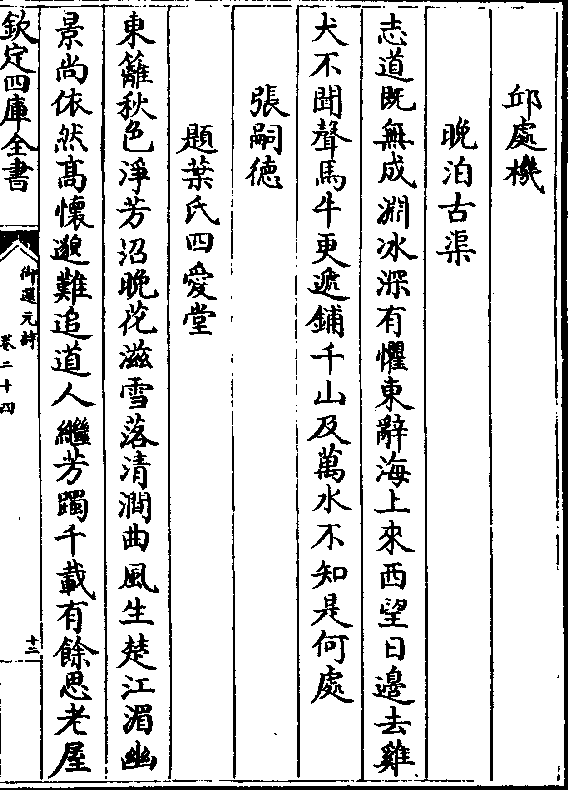 邱處機
晚泊古渠
志道既無成淵冰深有懼東辭海上來西望日邊去雞
犬不聞聲馬牛更遞鋪千山及萬水不知是何處
張嗣徳
題葉氏四愛堂
東籬秋色淨芳沼晚花滋雪落清澗曲風生楚江湄幽
景尚依然髙懷邈難追道人繼芳躅千載有餘思老屋
欽定四庫全書
御選元詩
卷二十四
十二